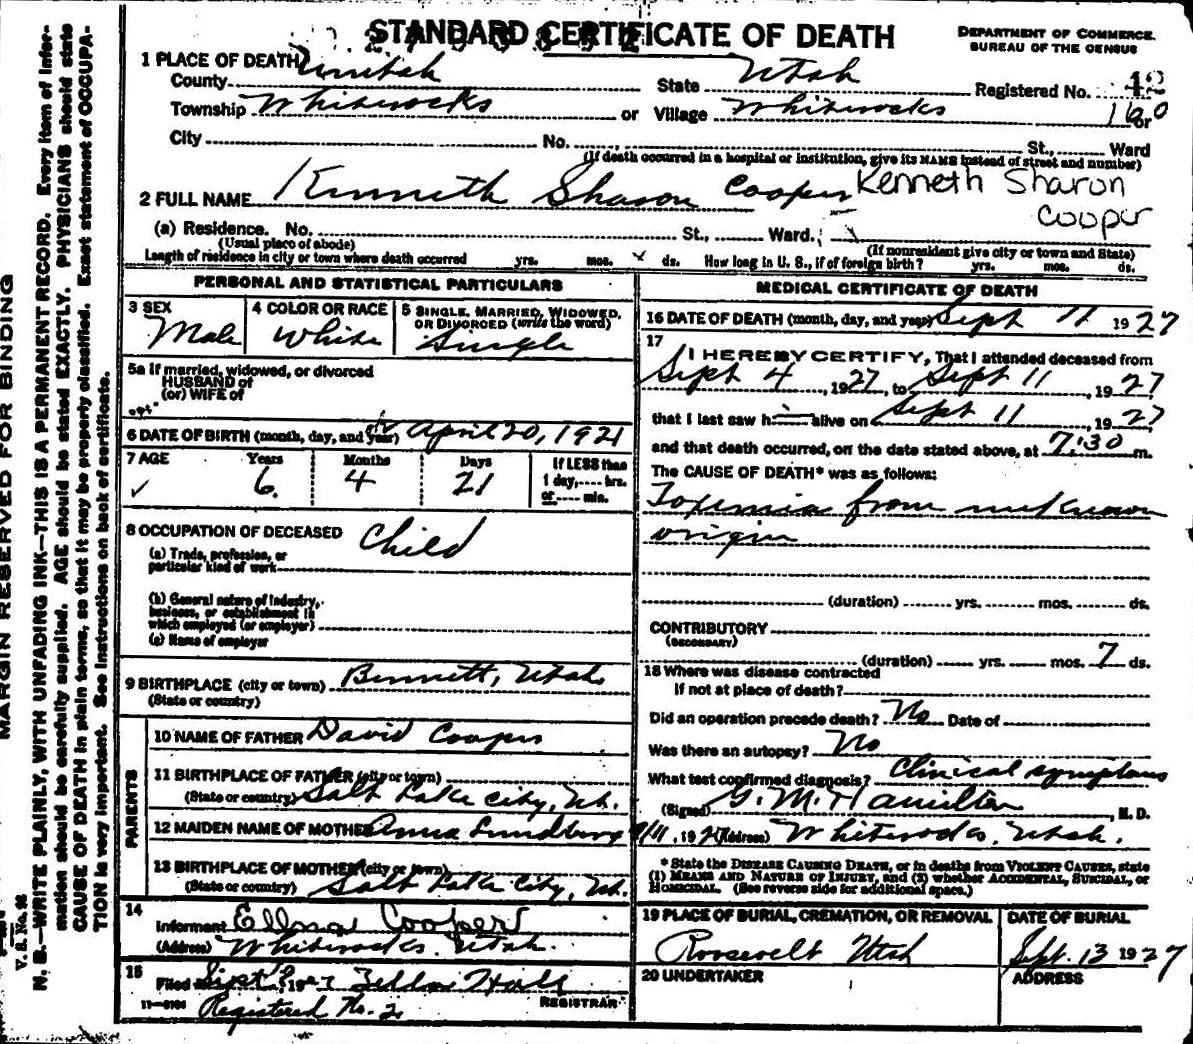 STANDARD CERTIFICATE OF DEATH
DEPARTMENT OF COMMERCE.
BUREAU OF THE CENSUS
1 PLACE OF DEATH
County Uintah State Utah Registered No. 42
Township Whiterocks or Village Whiterocks 160 or
City No. St., Ward
(If death occurred in a hospital or institution, give its NAME instead of street and number)
2 FULL NAME Kenneth Sharon Cooper Kenneth Sharon
Cooper
(a) Residence. No. St., Ward.
(Usual place of abode) (If nonresident give city or town and State)
Length of residence in city or town where death occurred yrs. mos. ds. How long in U. S., if of foreign birth? yrs. mos. ds.
PERSONAL AND STATISTICAL PARTICULARS
3 SEX 4 COLOR OR RACE 5 SINGLE, MARRIED, WIDOWED,
OR DIVORCED (write the word)
Male White Single
5a If married, widowed, or divorced
HUSBAND of
(or) WIFE of
6 DATE OF BIRTH (month, day, and year) April 20, 1921
7 AGE Years Months Days If LESS than
1 day, hrs.
or min.
6 4 21
8 OCCUPATION OF DECEASED Child
(a) Trade, profession, or
particular kind of work
(b) General nature of industry,
business, or establishment in
which employed (or employer)
(c) Name of employer
9 BIRTHPLACE (city or town) Bennett, Utah
(State or country)
PARENTS
10 NAME OF FATHER David Cooper
11 BIRTHPLACE OF FATHER (city or town)
(State or country) Salt Lake City, Ut.
12 MAIDEN NAME OF MOTHER Anna Lundberg
13 BIRTHPLACE OF MOTHER (city or town)
(State or country) Salt Lake City, Ut.
14
Informant Cooper
(Address) Whiterocks, Utah.
15
Filed Sept 1927 Hall
REGISTRAR
11-8184
Registered No. 2
MEDICAL CERTIFICATE OF DEATH
16 DATE OF DEATH (month, day, and year) Sept 11 1927
17
I HEREBY CERTIFY, That I attended deceased from
Sept 4, 1927, to Sept 11, 1927
that I last saw h alive on Sept 11, 1927
and that death occurred, on the date stated above, at 7:30 m.
The CAUSE OF DEATH* was as follows:
Toxemia from unknown
origin
(duration) yrs. mos. ds.
CONTRIBUTORY
(SECONDARY)
(duration) yrs. mos. 7 ds.
18 Where was disease contracted
if not at place of death?
Did an operation precede death? No Date of
Was there an autopsy? No
What test confirmed diagnosis? Clinical symptoms
(Signed) G. M. Hamilton, M. D.
9/11, 1927 (Address) Whiterocks, Utah.
* State the DISEASE CAUSING DEATH, or in deaths from VIOLENT CAUSES, state
(1) MEANS AND NATURE OF INJURY, and (2) whether ACCIDENTAL, SUICIDAL, or
HOMICIDAL. (See reverse side for additional space.)
19 PLACE OF BURIAL, CREMATION, OR REMOVAL DATE OF BURIAL
Roosevelt Utah Sept. 13 1927
20 UNDERTAKER ADDRESS
MARGIN RESERVED FOR BINDING
V. S. No. 98
N. B.—WRITE PLAINLY, WITH UNFADING INK—THIS IS A PERMANENT RECORD. Every item of infor-
mation should be carefully supplied. AGE should be stated EXACTLY. PHYSICIANS should state
CAUSE OF DEATH in plain terms, so that it may be properly classified. Exact statement of OCCUPA-
TION is very important. See instructions on back of certificate.